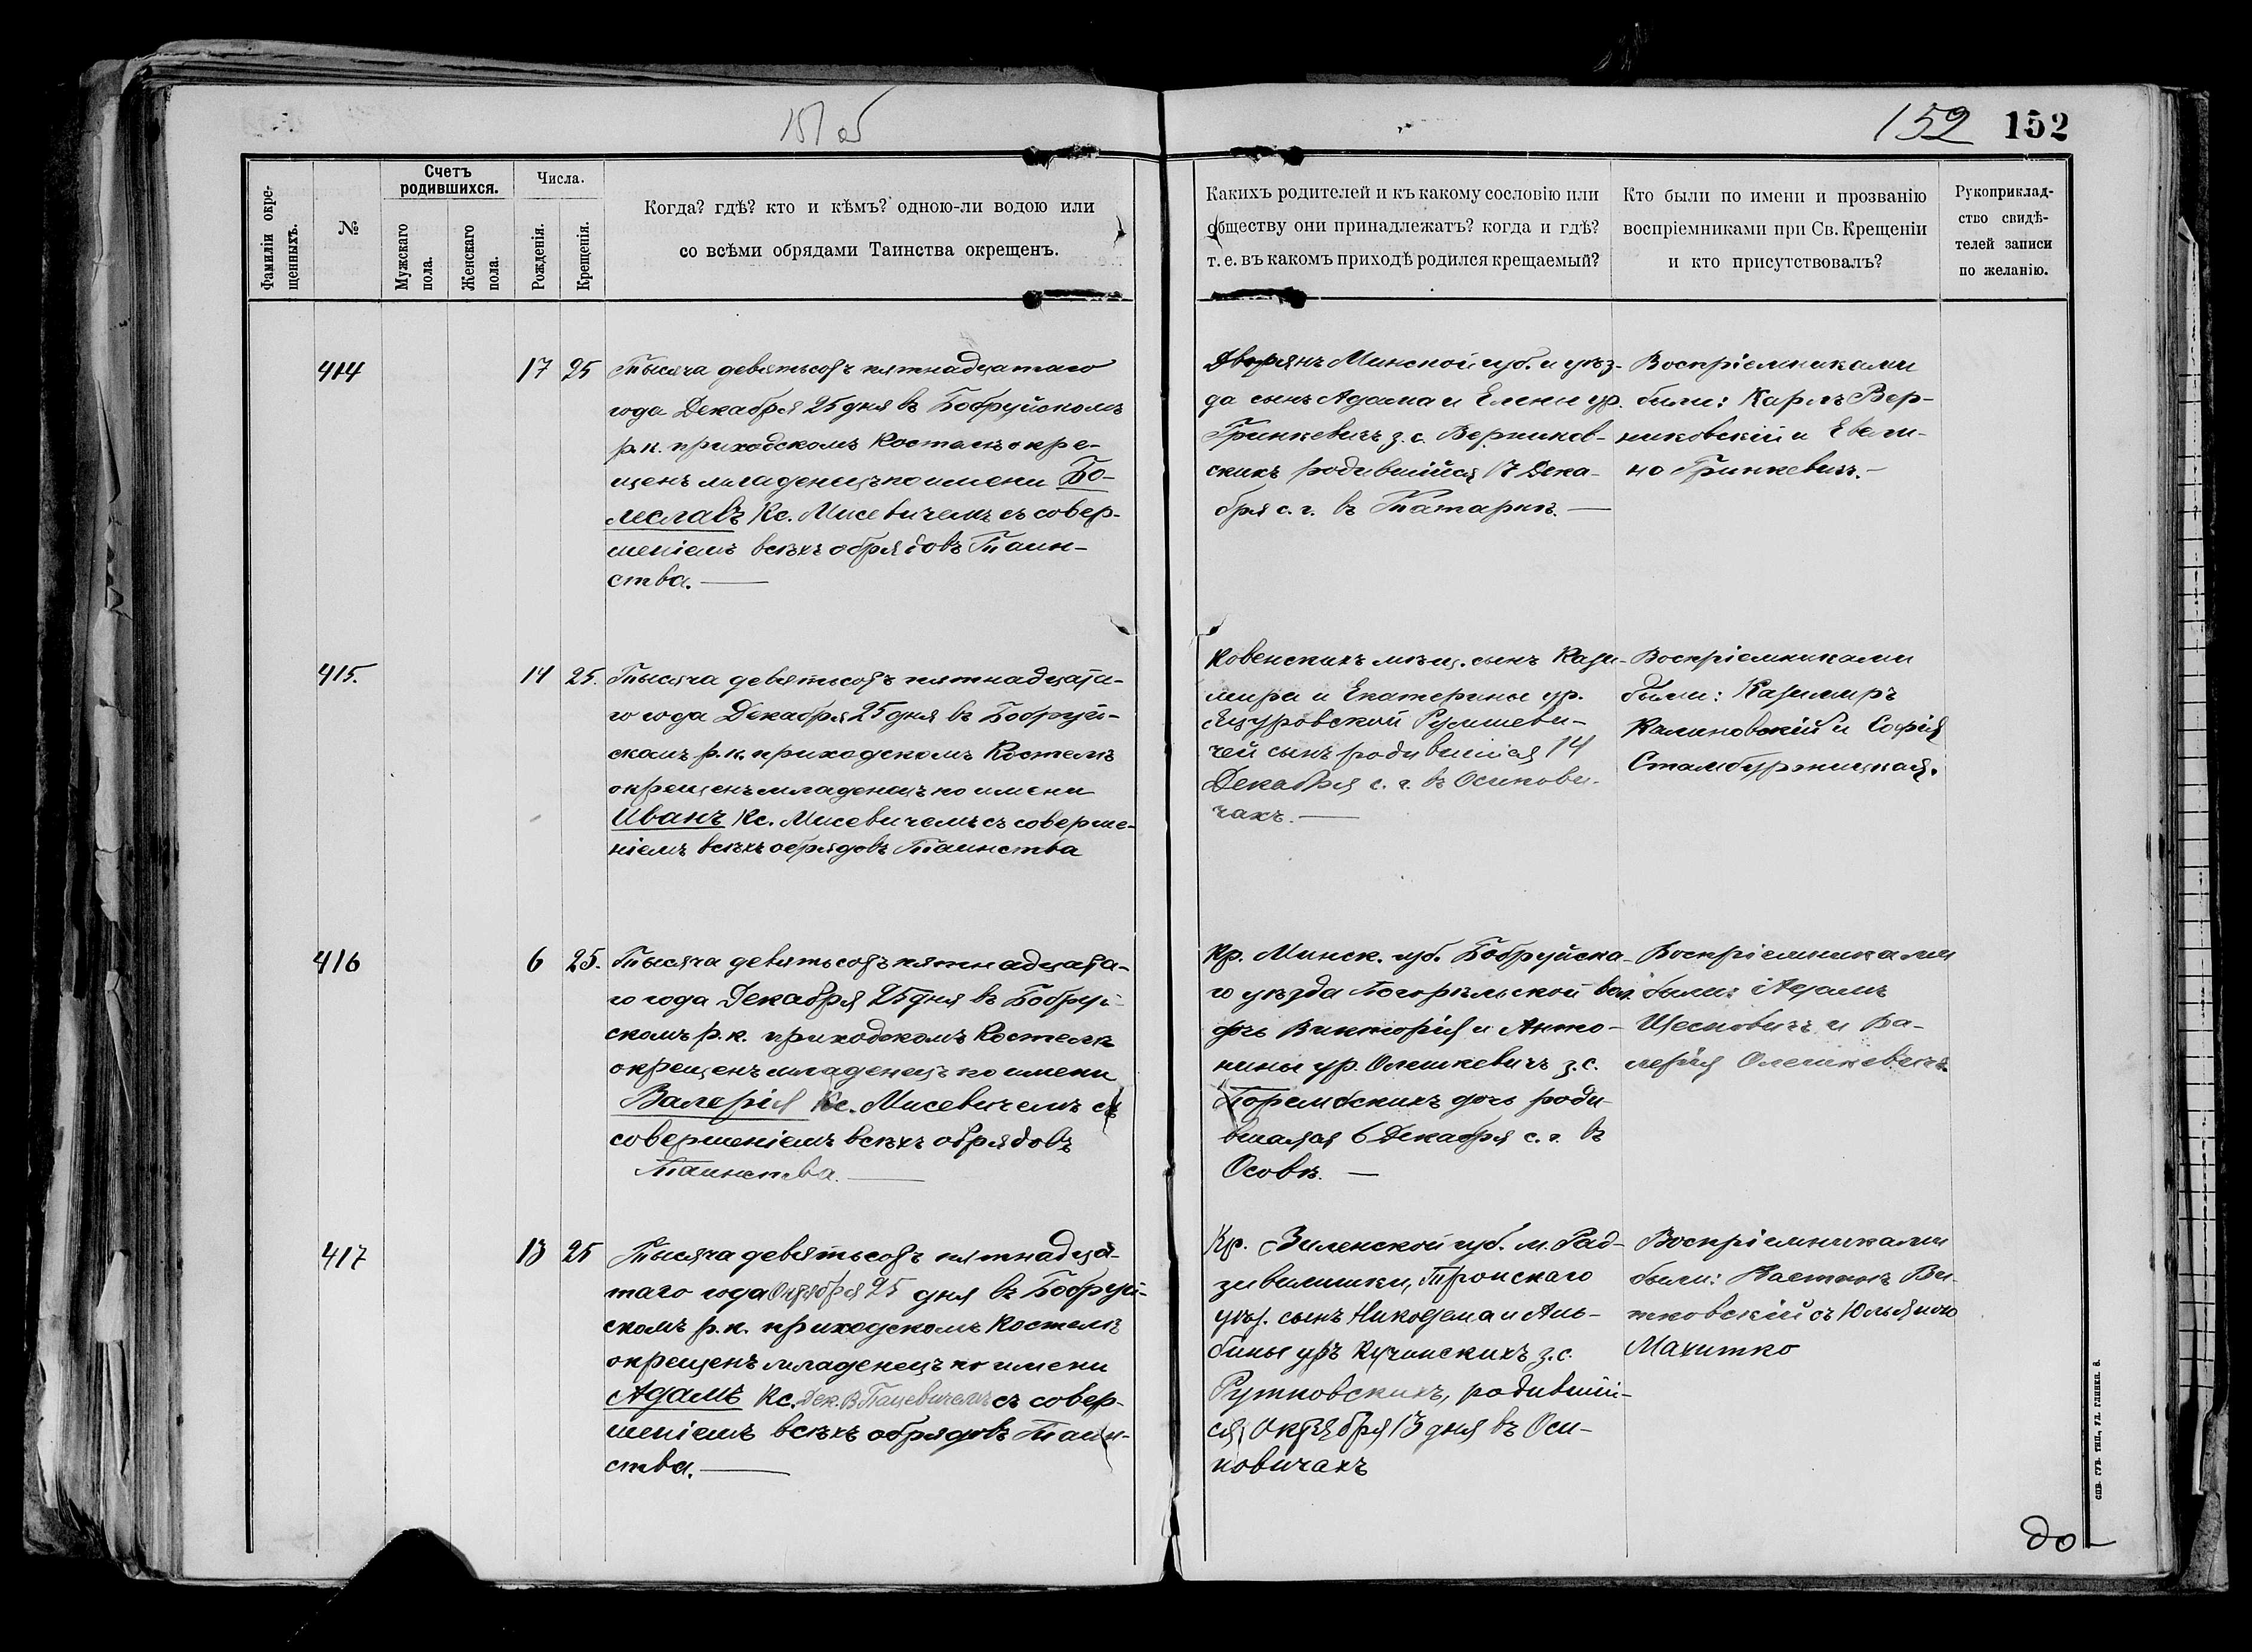 151 об
152 152
Фамиліи окре-
щенныхъ.
№
Счетъ
родившихся.
Мужскаго
пола.
Женскаго
пола.
Числа.
Рожденія.
Крещенія.
Когда? гдѣ? кто и кѣмъ? одною-ли водою или
со всѣми обрядами Таинства окрещенъ.
Какихъ родителей и къ какому сословію или
обществу они принадлежатъ? когда и гдѣ?
т. е. въ какомъ приходѣ родился крещаемый?
Кто были по имени и прозванію
воспріемниками при Св. Крещеніи
и кто присутствовалъ?
Рукоприклад-
ство свидѣ-
телей записи
по желанію.
414
17 25
Тысяча девятьсотъ пятнадцатаго
года Декабря 25 дня въ Бобруйскомъ
р.к. приходскомъ Костелѣ окре-
щенъ младенецъ по имени Бо-
леславъ Кс. Мисевичемъ съ совер-
шеніемъ всѣхъ обрядовъ Таин-
ства.—
Дворянъ Минской губ. и уѣз-
да сынъ Адама и Елены ур.
Гринкевичъ з. с. Верников-
скихъ родившійся 17 Дека-
бря с. г. въ Татаркѣ.—
Воспріемниками
были: Карлъ Вер-
никовскій и Евели-
на Гринкевичъ.—
415.
14 25.
Тысяча девятьсотъ пятнадцата-
го года Декабря 25 дня въ Бобруй-
скомъ р.к. приходскомъ Костелѣ
окрещенъ младенецъ по имени
Иванъ Кс. Мисевичемъ съ соверше-
ніемъ всѣхъ обрядовъ Таинства
Ковенскихъ мѣщ. сынъ Кази-
мира и Екатерины ур.
Яцуровской
чей сынъ родившійся 14
Декабря с. г. въ Осипови-
чахъ.—
Воспріемниками
были: Казимиръ
Калиновскій и Софія
416
6 25.
Тысяча девятьсотъ пятнадцата-
го года Декабря 25 дня въ Бобруй-
скомъ р.к. приходскомъ Костелѣ
окрещенъ младенецъ по имени
Валерія Кс. Мисевичемъ съ
совершеніемъ всѣхъ обрядовъ
Таинства.—
Кр. Минск. губ. Бобруйска-
го уѣзда Погорѣльской вол.
дочь Викторія и Анто-
нины ур. Олешкевичъ з. с.
дочь роди-
вшаяся 6 Декабря с. г. въ
Осовѣ.—
Воспріемниками
были: Адамъ
и Ва-
лерія Олешкевичъ.
417
13 25
Тысяча девятьсотъ пятнадца-
таго года Октября 25 дня въ Бобруй-
скомъ р.к. приходскомъ Костелѣ
окрещенъ младенецъ по имени
Адамъ Кс. Дек. В. Пацевичемъ съ совер-
шеніемъ всѣхъ обрядовъ Таин-
ства.—
Кр. Виленской губ. м. Рад-
зивилишки, Трокскаго
уѣз. сынъ Никодема и Аль-
бины ур. Кучинскихъ з. с.
Рутковскихъ, родившій-
ся Октября 13 дня въ Оси-
повичахъ
Воспріемниками
были: Ви-
тковскій съ Юльяною
Махитко
до
СПВ. ГУБ. ТИП., УЛ. ГЛИНКИ. 8.